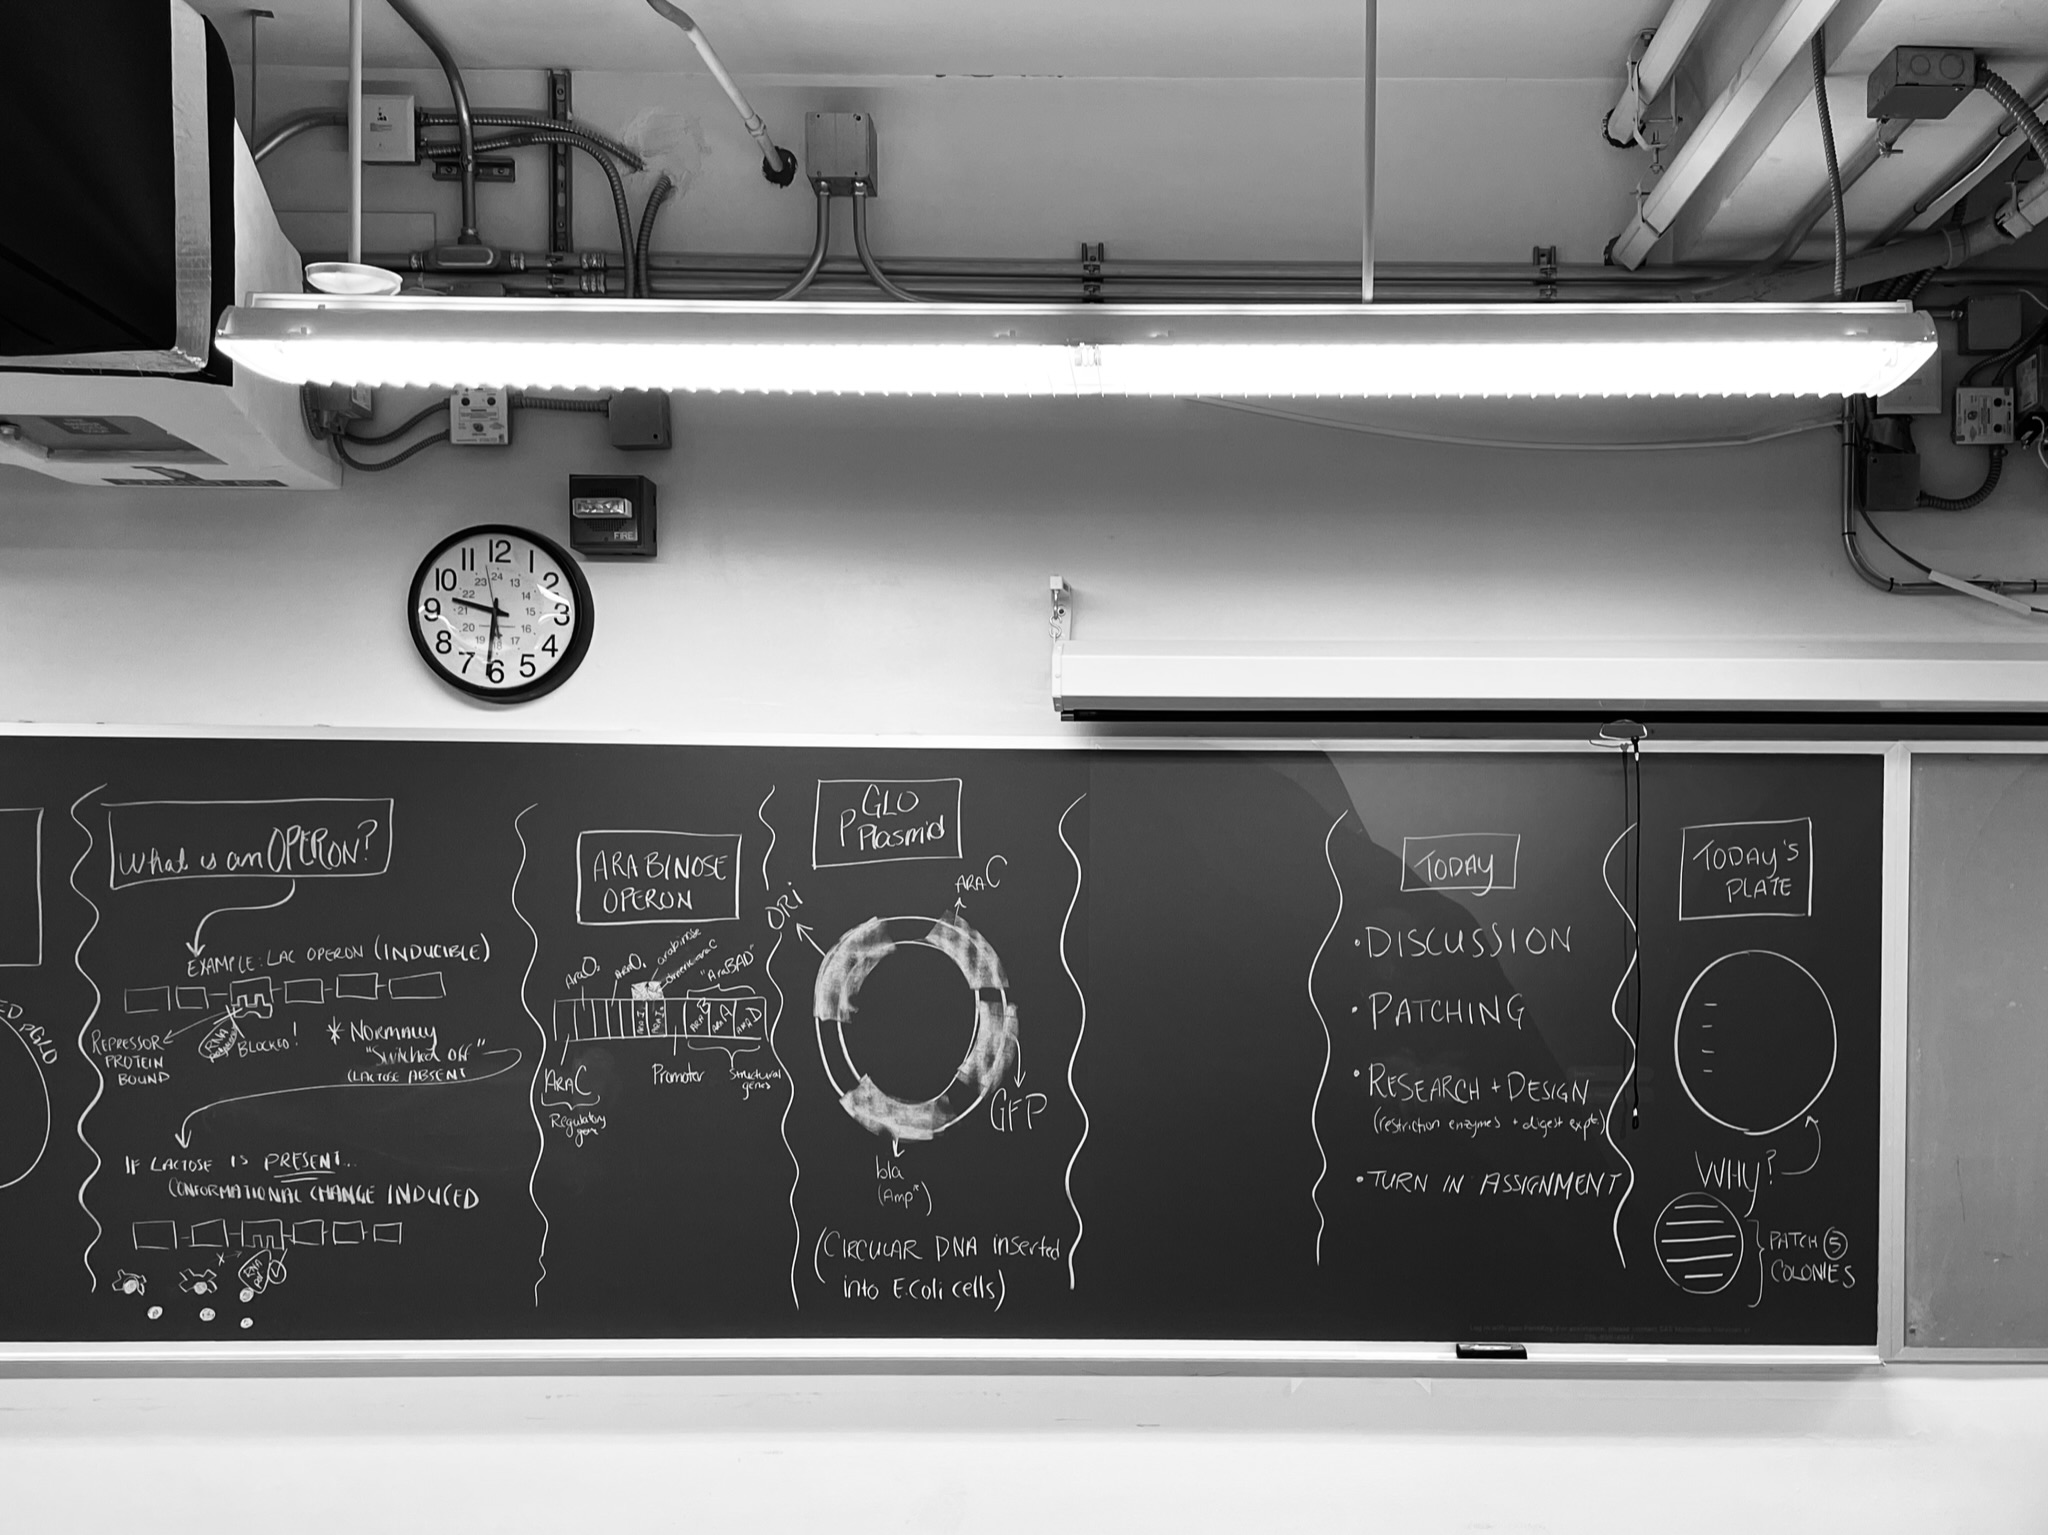 FIRE
12
1
2
3
4
5
6
7
8
9
10
11
24
13
14
15
16
17
18
19
20
21
22
23
pGLO
What is an OPERON?
EXAMPLE: LAC OPERON (INDUCIBLE)
REPRESSOR
PROTEIN
BOUND
RNA
BLOCKED!
* NORMALLY
"Switched off"
(LACTOSE ABSENT
IF LACTOSE IS PRESENT...
CONFORMATIONAL CHANGE INDUCED
RNA
pol
ARABINOSE
OPERON
AraO₂
AraO₁
arabinose
"AraBAD"
ARA B
ARA A
ARA D
AraC
Regulatory
gene
Promoter
Structural
genes
pGLO
Plasmid
ORi
ARA C
GFP
bla
(Ampᴿ)
(CIRCULAR DNA inserted
into E.Coli cells)
TODAY
• DISCUSSION
• PATCHING
• RESEARCH + DESIGN
(restriction enzymes + digest expt.)
• TURN IN ASSIGNMENT
TODAY'S
PLATE
WHY?
PATCH 5
COLONIES